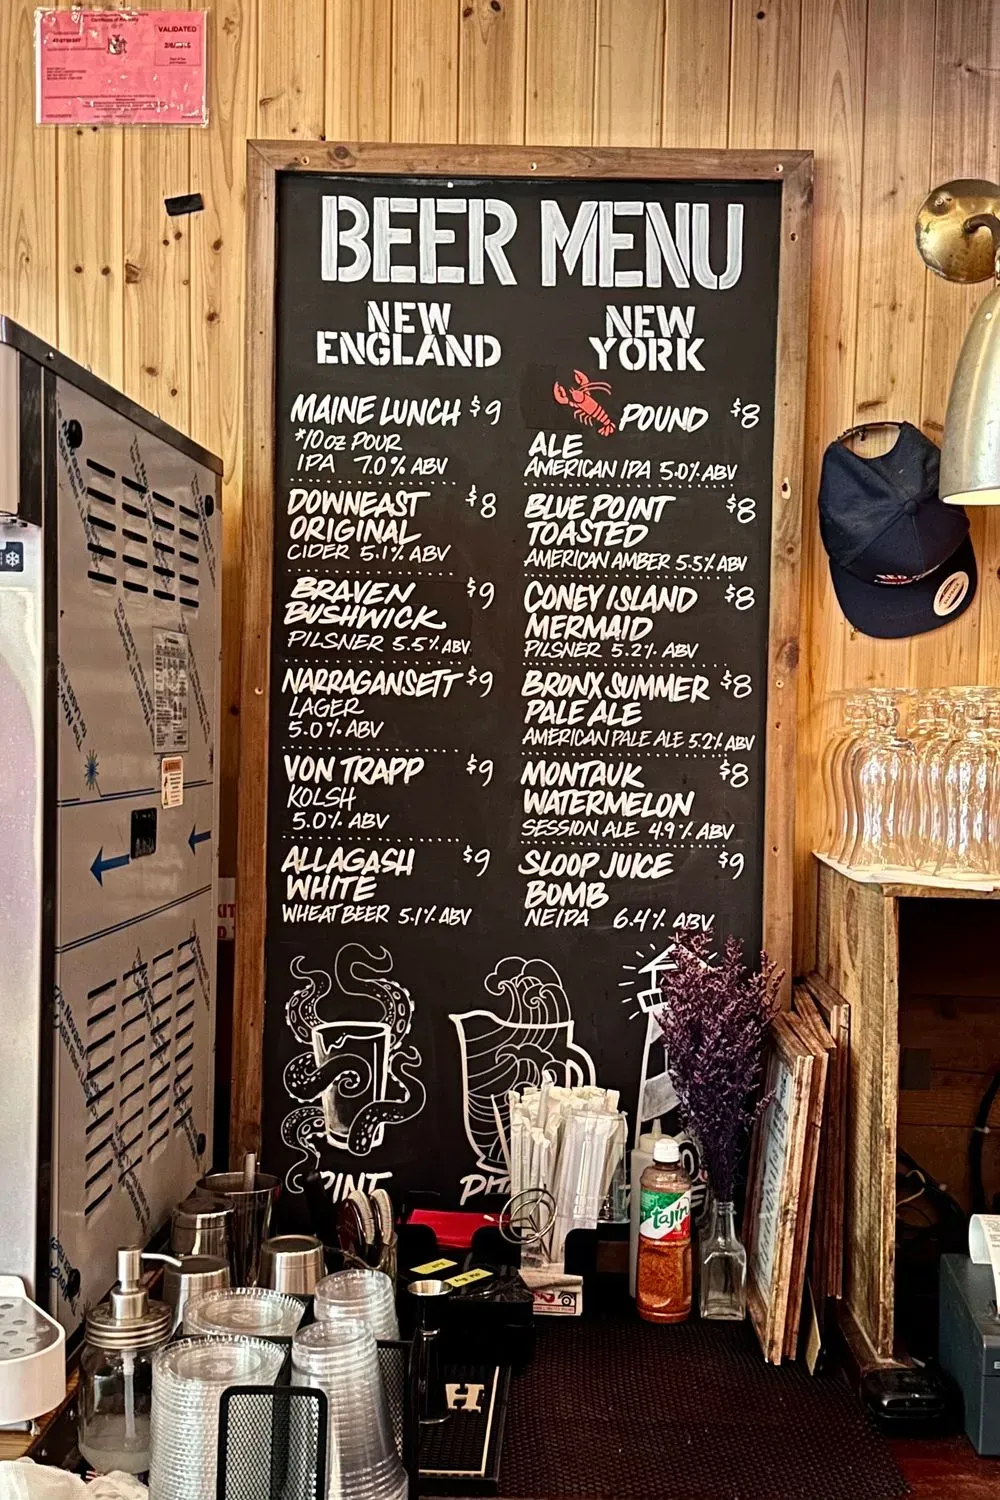 VALIDATED
BEER MENU
NEW
ENGLAND
MAINE LUNCH $9
*10 oz POUR
IPA 7.0% ABV
DOWNEAST $8
ORIGINAL
CIDER 5.1% ABV
BRAVEN $9
BUSHWICK
PILSNER 5.5% ABV
NARRAGANSETT $9
LAGER
5.0% ABV
VON TRAPP $9
KOLSH
5.0% ABV
ALLAGASH $9
WHITE
WHEAT BEER 5.1% ABV
NEW
YORK
POUND $8
ALE
AMERICAN IPA 5.0% ABV
BLUE POINT $8
TOASTED
AMERICAN AMBER 5.5% ABV
CONEY ISLAND $8
MERMAID
PILSNER 5.2% ABV
BRONX SUMMER $8
PALE ALE
AMERICAN PALE ALE 5.2% ABV
MONTAUK $8
WATERMELON
SESSION ALE 4.9% ABV
SLOOP JUICE $9
BOMB
NEIPA 6.4% ABV
PINT
RED
Tajín
H